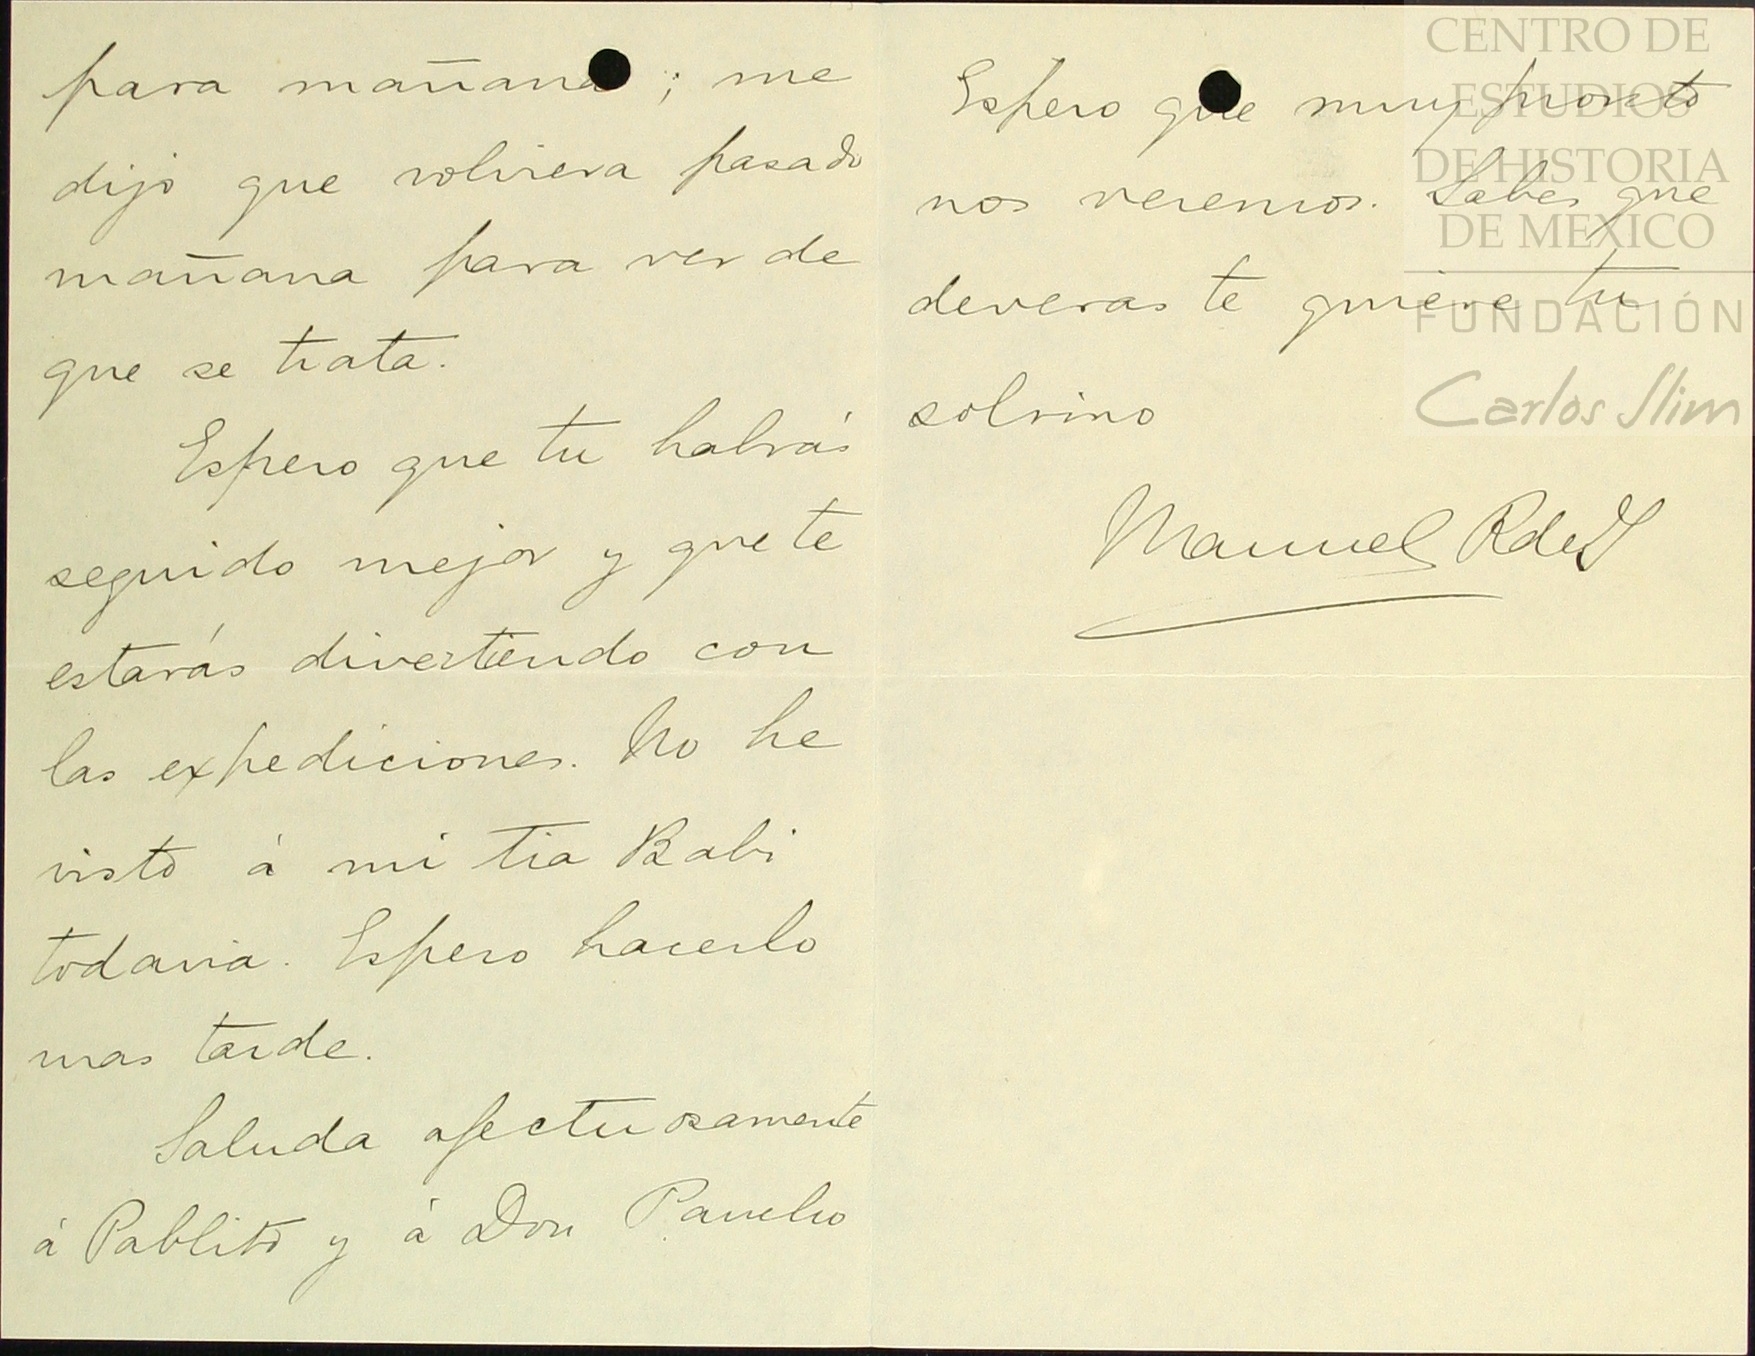 para mañana; me
dijo que volviera pasado
mañana para ver de
que se trata.
Espero que tu habrás
seguido mejor y que te
estarás divertiendo con
las expediciones. No he
visto á mi tia Babi
todavia. Espero hacerlo
mas tarde.
Saluda afectuosamente
á Pablito y á Don Pancho
Espero que muy pronto
nos veremos. Sabes que
deveras te quiere tu
sobrino
Manuel
CENTRO DE
ESTUDIOS
DE HISTORIA
DE MEXICO
FUNDACIÓN
Carlos Slim